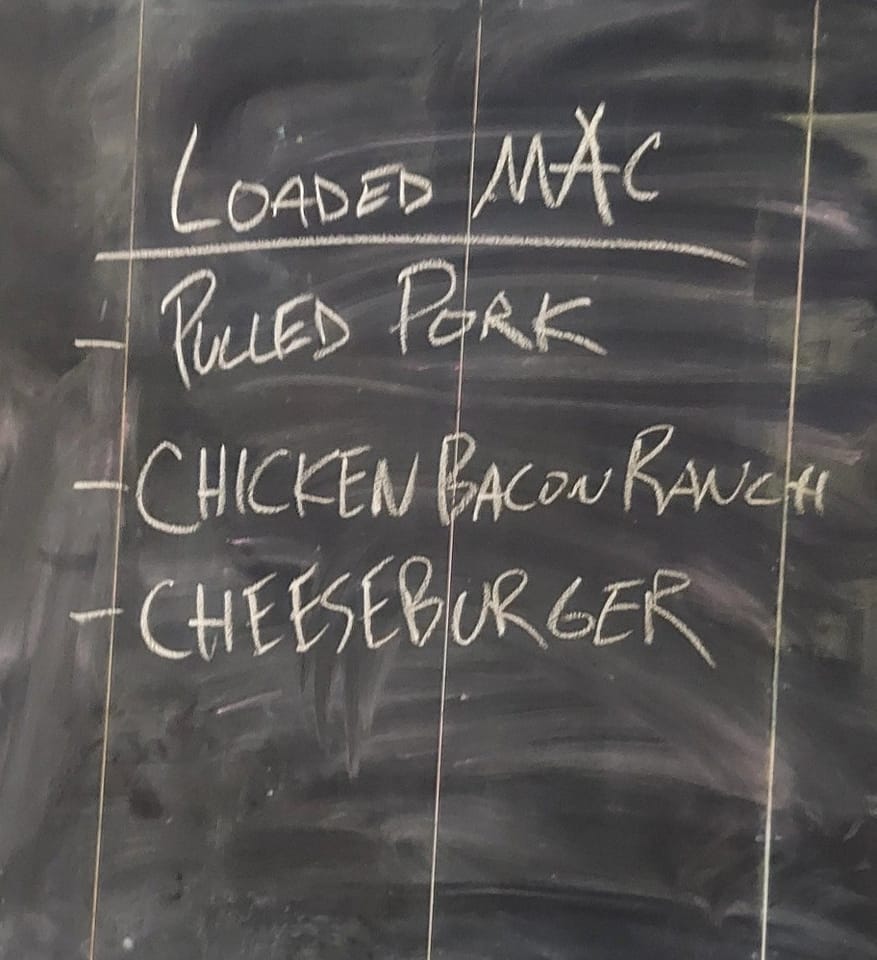 LOADED MAC
- PULLED PORK
- CHICKEN BACON RANCH
- CHEESEBURGER